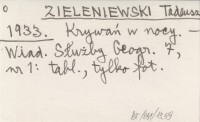 0 ZIELENIEWSKI Tadeusz
1933. Krywań w nocy. —
Wiad. Służby Geogr. 7,
nr 1: tabl., tylko fot.